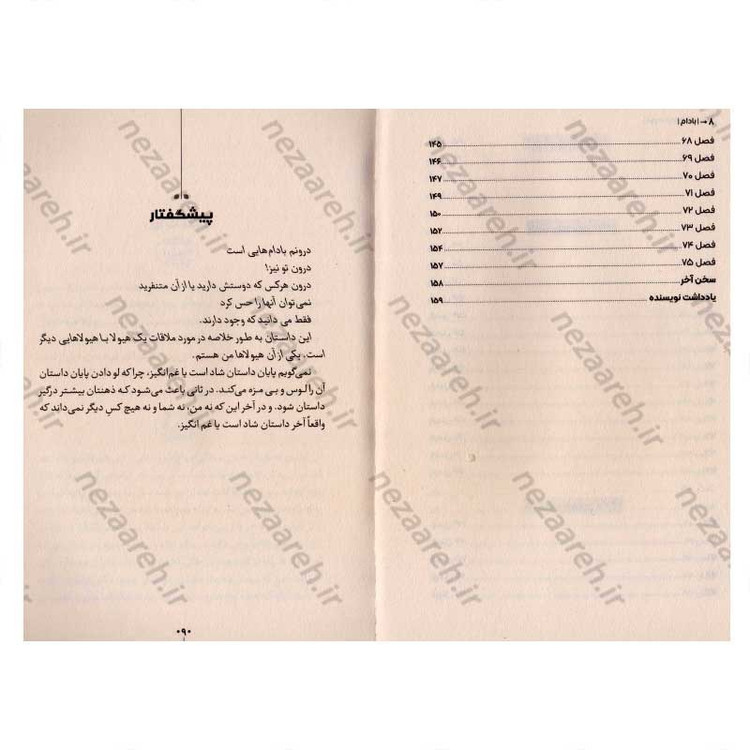 ۸ → | بادام |
فصل ۶۸ ........ ۱۴۵
فصل ۶۹ ........ ۱۴۶
فصل ۷۰ ........ ۱۴۷
فصل ۷۱ ........ ۱۴۹
فصل ۷۲ ........ ۱۵۰
فصل ۷۳ ........ ۱۵۲
فصل ۷۴ ........ ۱۵۴
فصل ۷۵ ........ ۱۵۷
سخن آخر ........ ۱۵۸
یادداشت نویسنده ........ ۱۵۹
پیشگفتار
درونم بادام‌هایی است
درون تو نیز!
درون هرکس که دوستش دارید یا از آن متنفرید
نمی‌توان آنها را حس کرد
فقط می دانید که وجود دارند.
این داستان به طور خلاصه در مورد ملاقات یک هیولا با هیولاهایی دیگر
است. یکی از آن هیولاها من هستم.
نمی‌گویم پایان داستان شاد است یا غم‌انگیز، چرا که لو دادن پایان داستان
آن را لوس و بی مزه می‌کند. در ثانی باعث می‌شود که ذهنتان بیشتر درگیر
داستان شود. و در آخر این که نه من، نه شما و نه هیچ کس دیگر نمی‌داند که
واقعاً آخر داستان شاد است یا غم انگیز.
۰۹۰
nezaareh.ir
nezaareh.ir
nezaareh.ir
nezaareh.ir
nezaareh.ir
nezaareh.ir
nezaareh.ir
nezaareh.ir